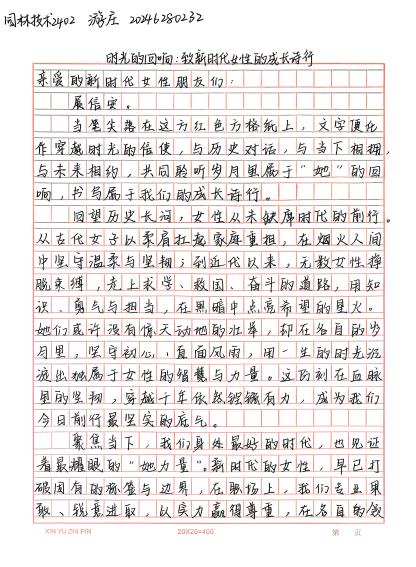 园林技术2402 游庄 20246280232
时光的回响:致新时代女性的成长诗行
亲爱的新时代女性朋友们:
展信安。
当笔尖落在这方红色方格纸上,文字便化
作穿越时光的信使,与历史对话,与当下相拥,
与未来相约,共同聆听岁月里属于“她”的回
响,书写属于我们的成长诗行。
回望历史长河,女性从未缺席时代的前行。
从古代女子以柔肩扛起家庭重担,在烟火人间
中坚守温柔与坚韧;到近代以来,无数女性挣
脱束缚,走上求学、救国、奋斗的道路,用知
识、勇气与担当,在黑暗中点亮希望的星火。
她们或许没有惊天动地的壮举,却在各自的岁
月里,坚守初心、直面风雨,用一生的时光沉
淀出独属于女性的智慧与力量。这份刻在血脉
里的坚韧,穿越千年依然铿锵有力,成为我们
今日前行最坚实的底气。
聚焦当下,我们身处最好的时代,也见证
着最耀眼的“她力量”。新时代的女性,早已打
破固有的标签与边界,在职场上,我们专业果
敢、锐意进取,以实力赢得尊重,在各自的领
XIN YU ZHI PIN 20X20=400 第 页